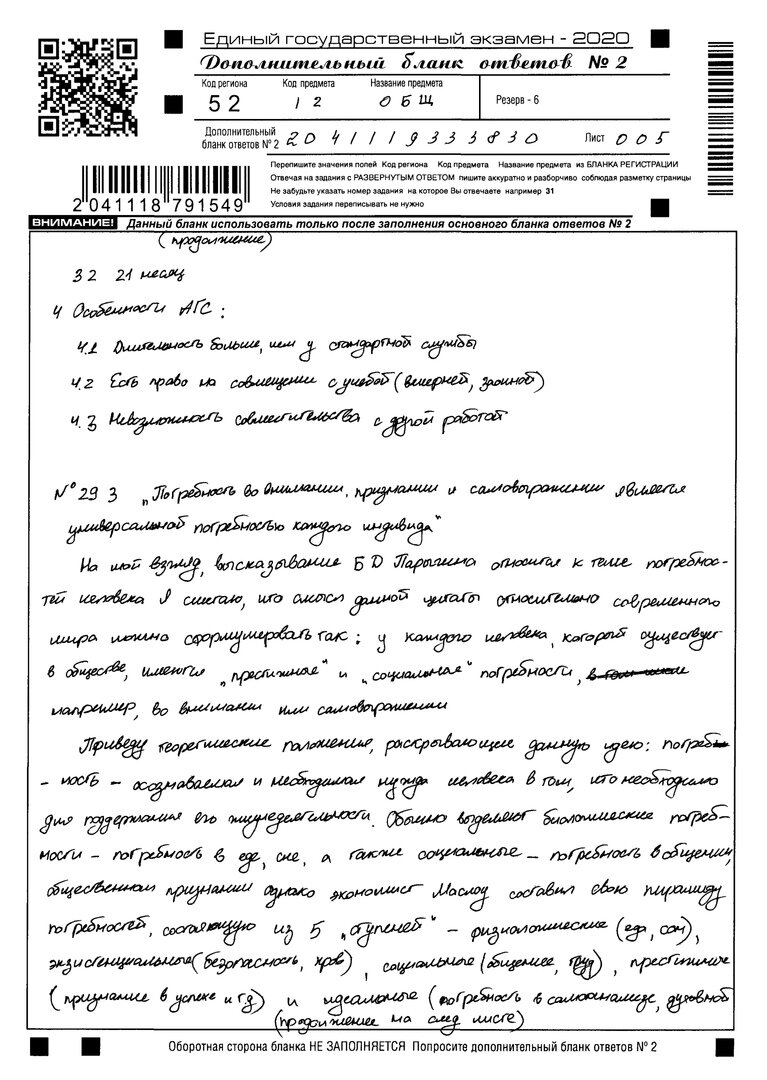 Единый государственный экзамен - 2020
Дополнительный бланк ответов № 2
Код региона Код предмета Название предмета
52 12 ОБЩ Резерв - 6
Дополнительный бланк ответов № 2 2041119333830 Лист 005
Перепишите значения полей Код региона Код предмета Название предмета из БЛАНКА РЕГИСТРАЦИИ
Отвечая на задания с РАЗВЕРНУТЫМ ОТВЕТОМ пишите аккуратно и разборчиво соблюдая разметку страницы
Не забудьте указать номер задания на которое Вы отвечаете например 31
Условия задания переписывать не нужно
2 041118 791549
ВНИМАНИЕ! Данный бланк использовать только после заполнения основного бланка ответов № 2
(продолжение)
3 2 21 месяц
4 Особенности АГС:
4.1 Длительность больше, чем у стандартной службы
4.2 Есть право на совмещение с учебой (вечерней, заочной)
4.3 Невозможность совместительства с другой работой
№ 29 3 „Потребность во внимании, признании и самовыражении является
универсальной потребностью каждого индивида"
На мой взгляд, высказывание Б Д Парыгина относится к теме потребнос-
тей человека Я считаю, что смысл данной цитаты относительно современного
мира можно сформулировать так: у каждого человека, который существует
в обществе, имеются „престижные" и „социальные" потребности, в том числе
например, во внимании или самовыражении
Приведу теоретические положения, раскрывающие данную идею: потреб
- ность - осознаваемая и необходимая нужда человека в том, что необходимо
для поддержания его жизнедеятельности. Обычно выделяют биологические потреб-
ности - потребность в еде, сне, а также социальные - потребность в общении,
общественном признании однако экономист Маслоу составил свою пирамиду
потребностей, состоящую из 5 „ступеней" - физиологические (еда, сон),
экзистенциальные (безопасность, кров), социальные (общение, труд), престижные
(признание в успехе и тд) и идеальные (потребность в самоанализе, духовной
(продолжение на след листе)
Оборотная сторона бланка НЕ ЗАПОЛНЯЕТСЯ Попросите дополнительный бланк ответов № 2